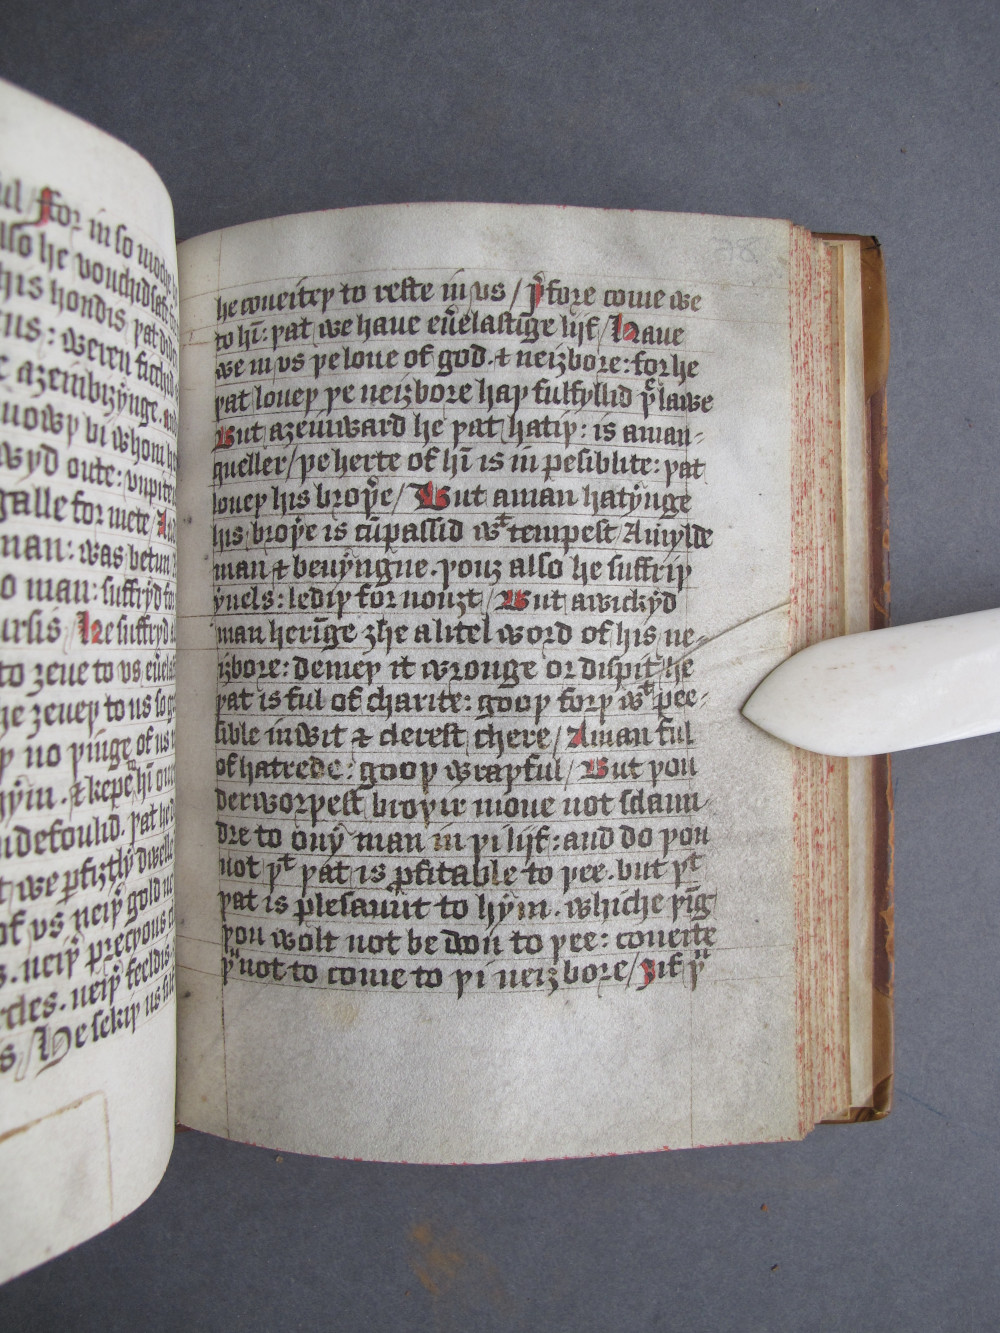 ful / ffor in so moche
also he vouchidsafe
his hondis þat
us: weren ficchid
azeinbizynge. and
knowþ bi whom he
wyd oute: vnpite
galle for mete /
man: was betun
o man: suffryd for
ursis / He suffryd
to zeue to vs eūelas
he zeueþ to us so g
þ no þinge of us
hym. & kepe hī oure
ndefoulid. þat he
t we pfiztly dwelle
of vs neiþ gold ne
s. neiþ precyous
rcles. neiþ feeldis
s / He sekiþ us
58
he coueiteþ to reste in vs / þfore come we
to hī: þat we haue eūelastige lijf / Haue
we in vs þe loue of god. & neizbore: for he
þat loueþ þe neizbore haþ fulfyllid þe lawe
But azeinward he þat hatiþ: is a man-
queller / þe herte of hī is in pesiblite: þat
loueþ his broþe / But a man hatynge
his broþe is cūpassid wt tempest A mylde
man & benyngne. þouz also he suffriþ
yuels: lediþ for nouzt / But a wickyd
man herīge zhe a litel word of his ne-
izbore: demeþ it wronge or dispit / he
þat is ful of charite: gooþ forþ wt pee-
sible in wit & clerest chere / A man ful
of hatrede: gooþ wraþful / But þou
derworþest broþir moue not sclaun-
dre to ony man in þi lijf: and do þou
not þt þat is pfitable to þee. but þt
þat is plesaunt to hym. whiche þīg
þou wolt not be don to þee: coueite
þu not to come to þi neizbore / zif þu